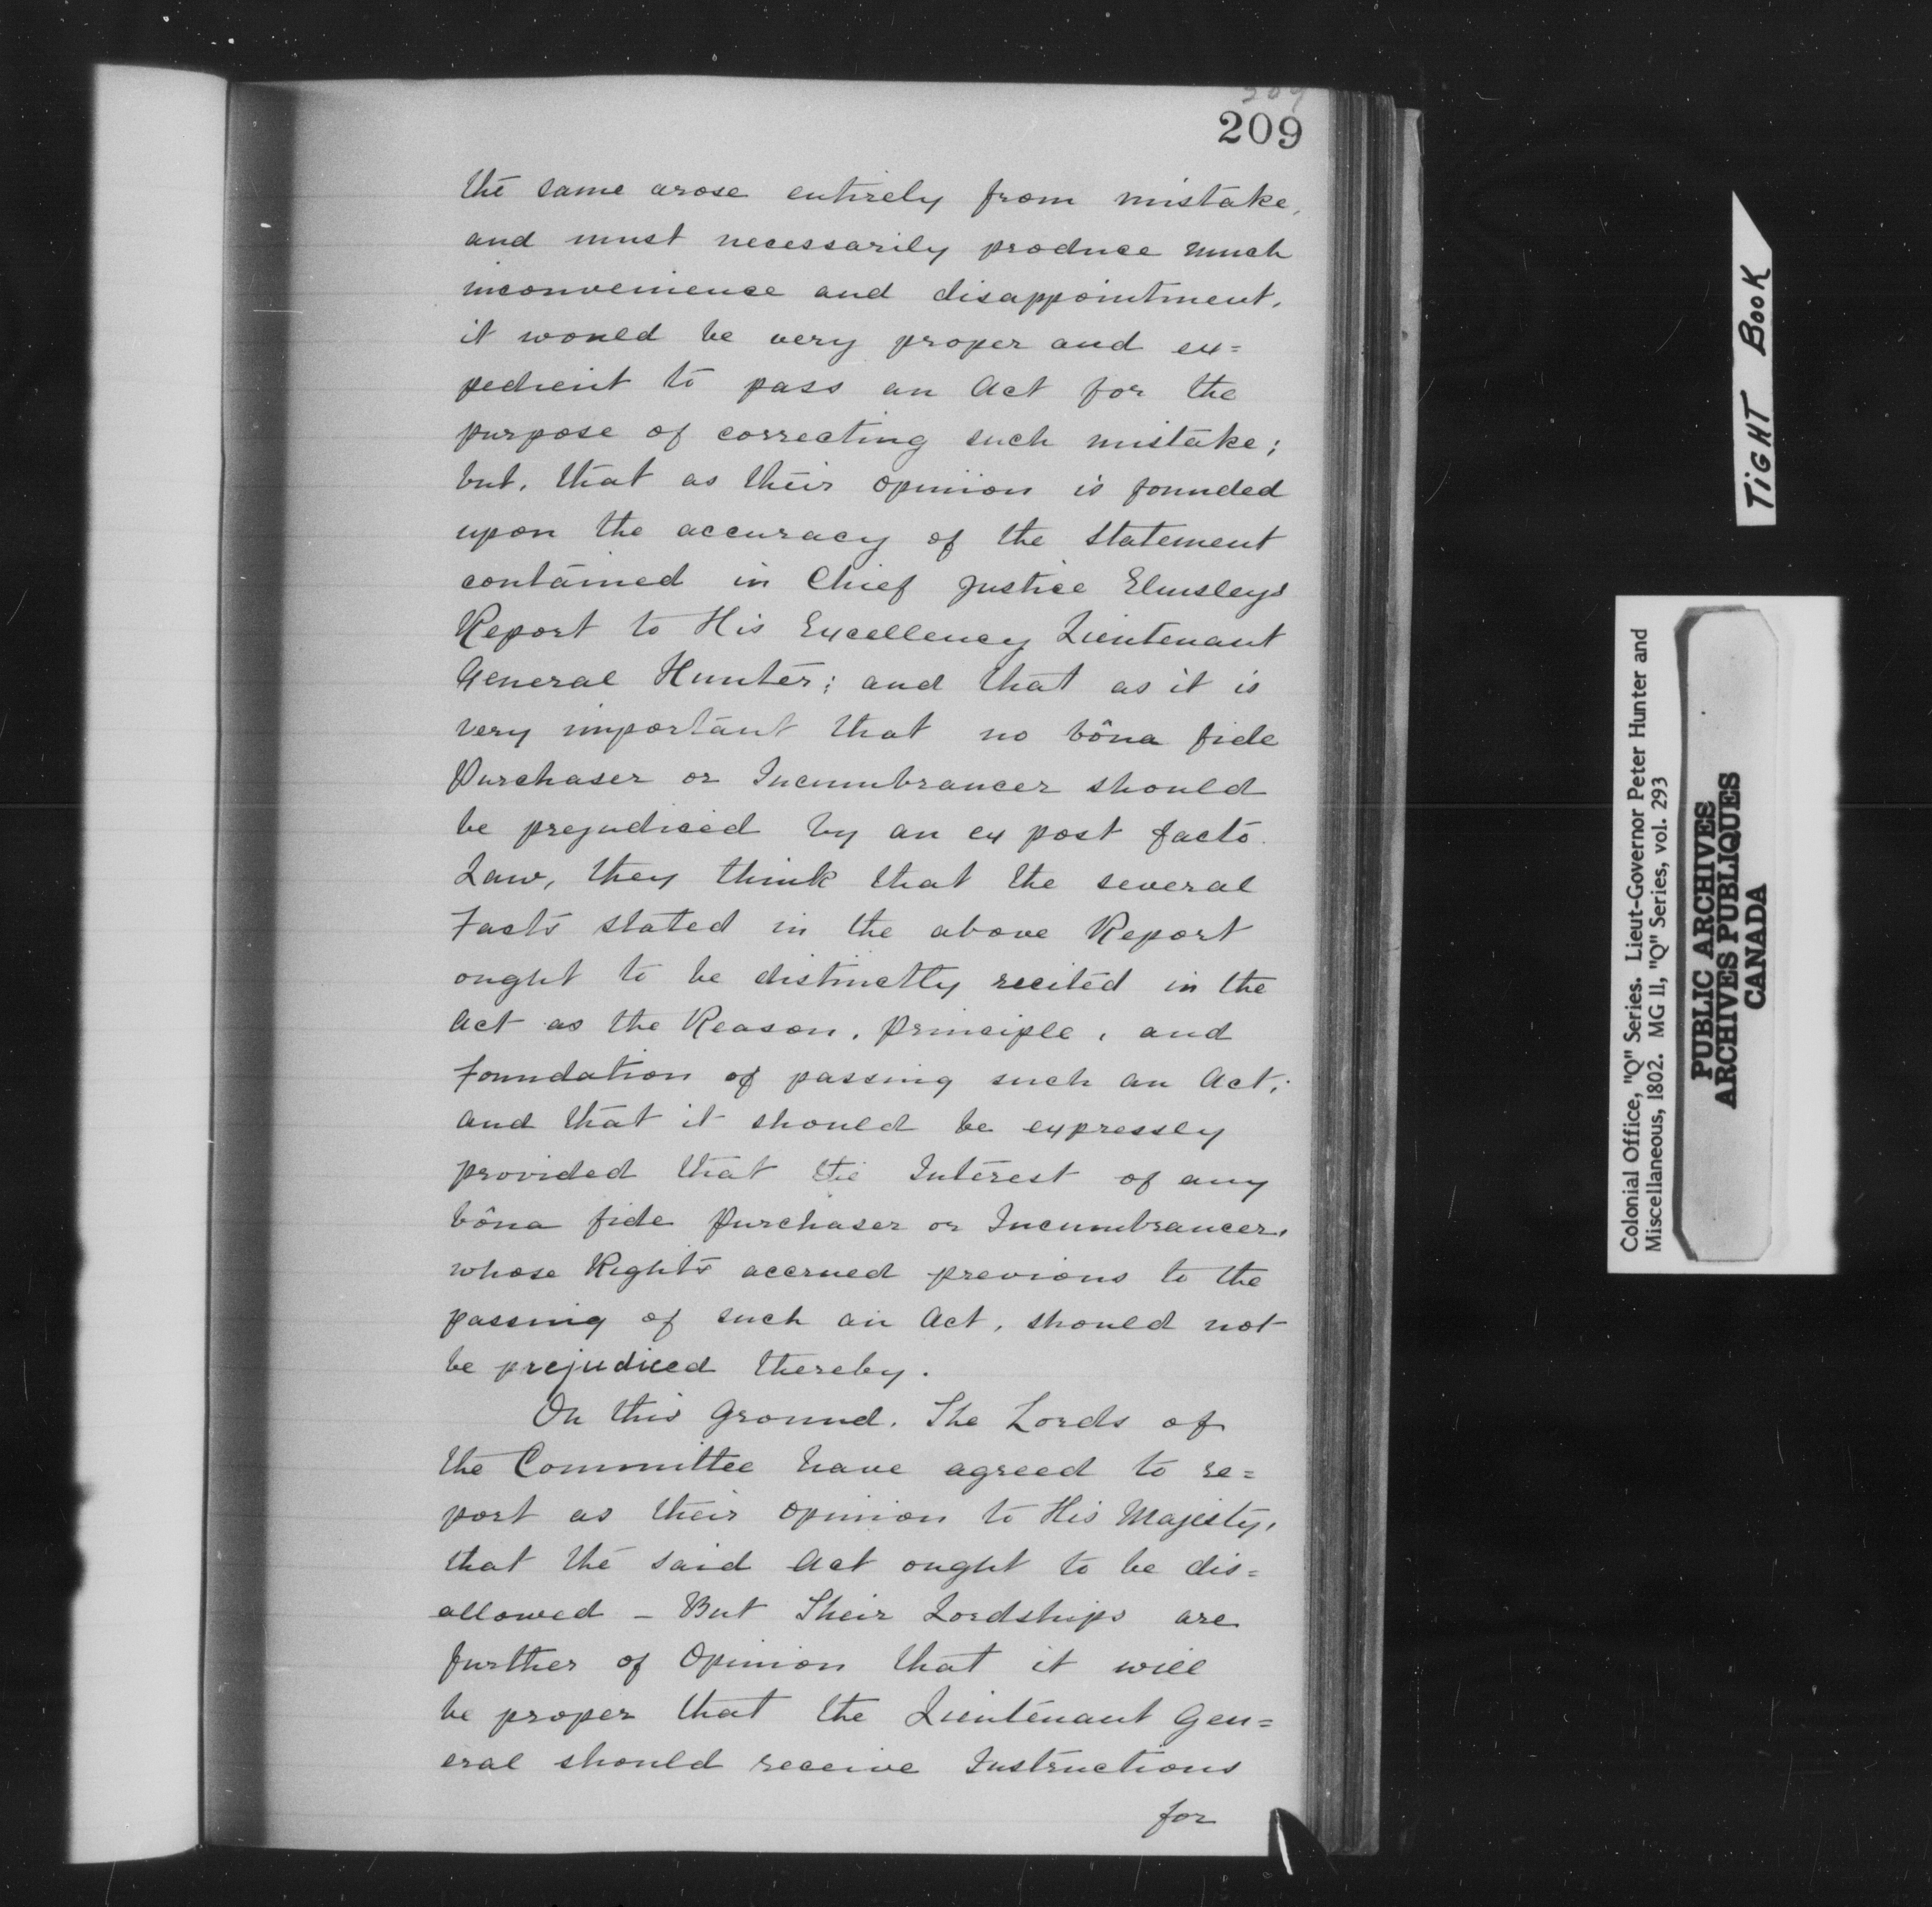 209
209
the same arose entirely from mistake,
and must necessarily produce much
inconvenience and disappointment,
it would be very proper and ex=
pedient to pass an Act for the
purpose of correcting such mistake;
but, that as their opinion is founded
upon the accuracy of the Statement
contained in Chief Justice Elmsleys
Report to His Excellency Lieutenant
General Hunter; and that as it is
very important that no bôna fide
Purchaser or Incumbrancer should
be prejudiced by an ex post facto
Law, they think that the several
Facts stated in the above Report
ought to be distinctly recited in the
Act as the Reason, Principle, and
foundation of passing such an Act;
and that it should be expressly
provided that the Interest of any
bôna fide Purchaser or Incumbrancer,
whose Rights accrued previous to the
passing of such an Act, should not
be prejudiced thereby.
On this Ground, The Lords of
the Committee have agreed to re=
port as their opinion to His Majesty,
that the said Act ought to be dis=
allowed - But Their Lordships are
further of Opinion that it will
be proper that the Lieutenant Gen=
eral should receive Instructions
for
TIGHT BOOK
Colonial Office, "Q" Series. Lieut-Governor Peter Hunter and
Miscellaneous, 1802. MG 11, "Q" Series, vol. 293
PUBLIC ARCHIVES
ARCHIVES PUBLIQUES
CANADA